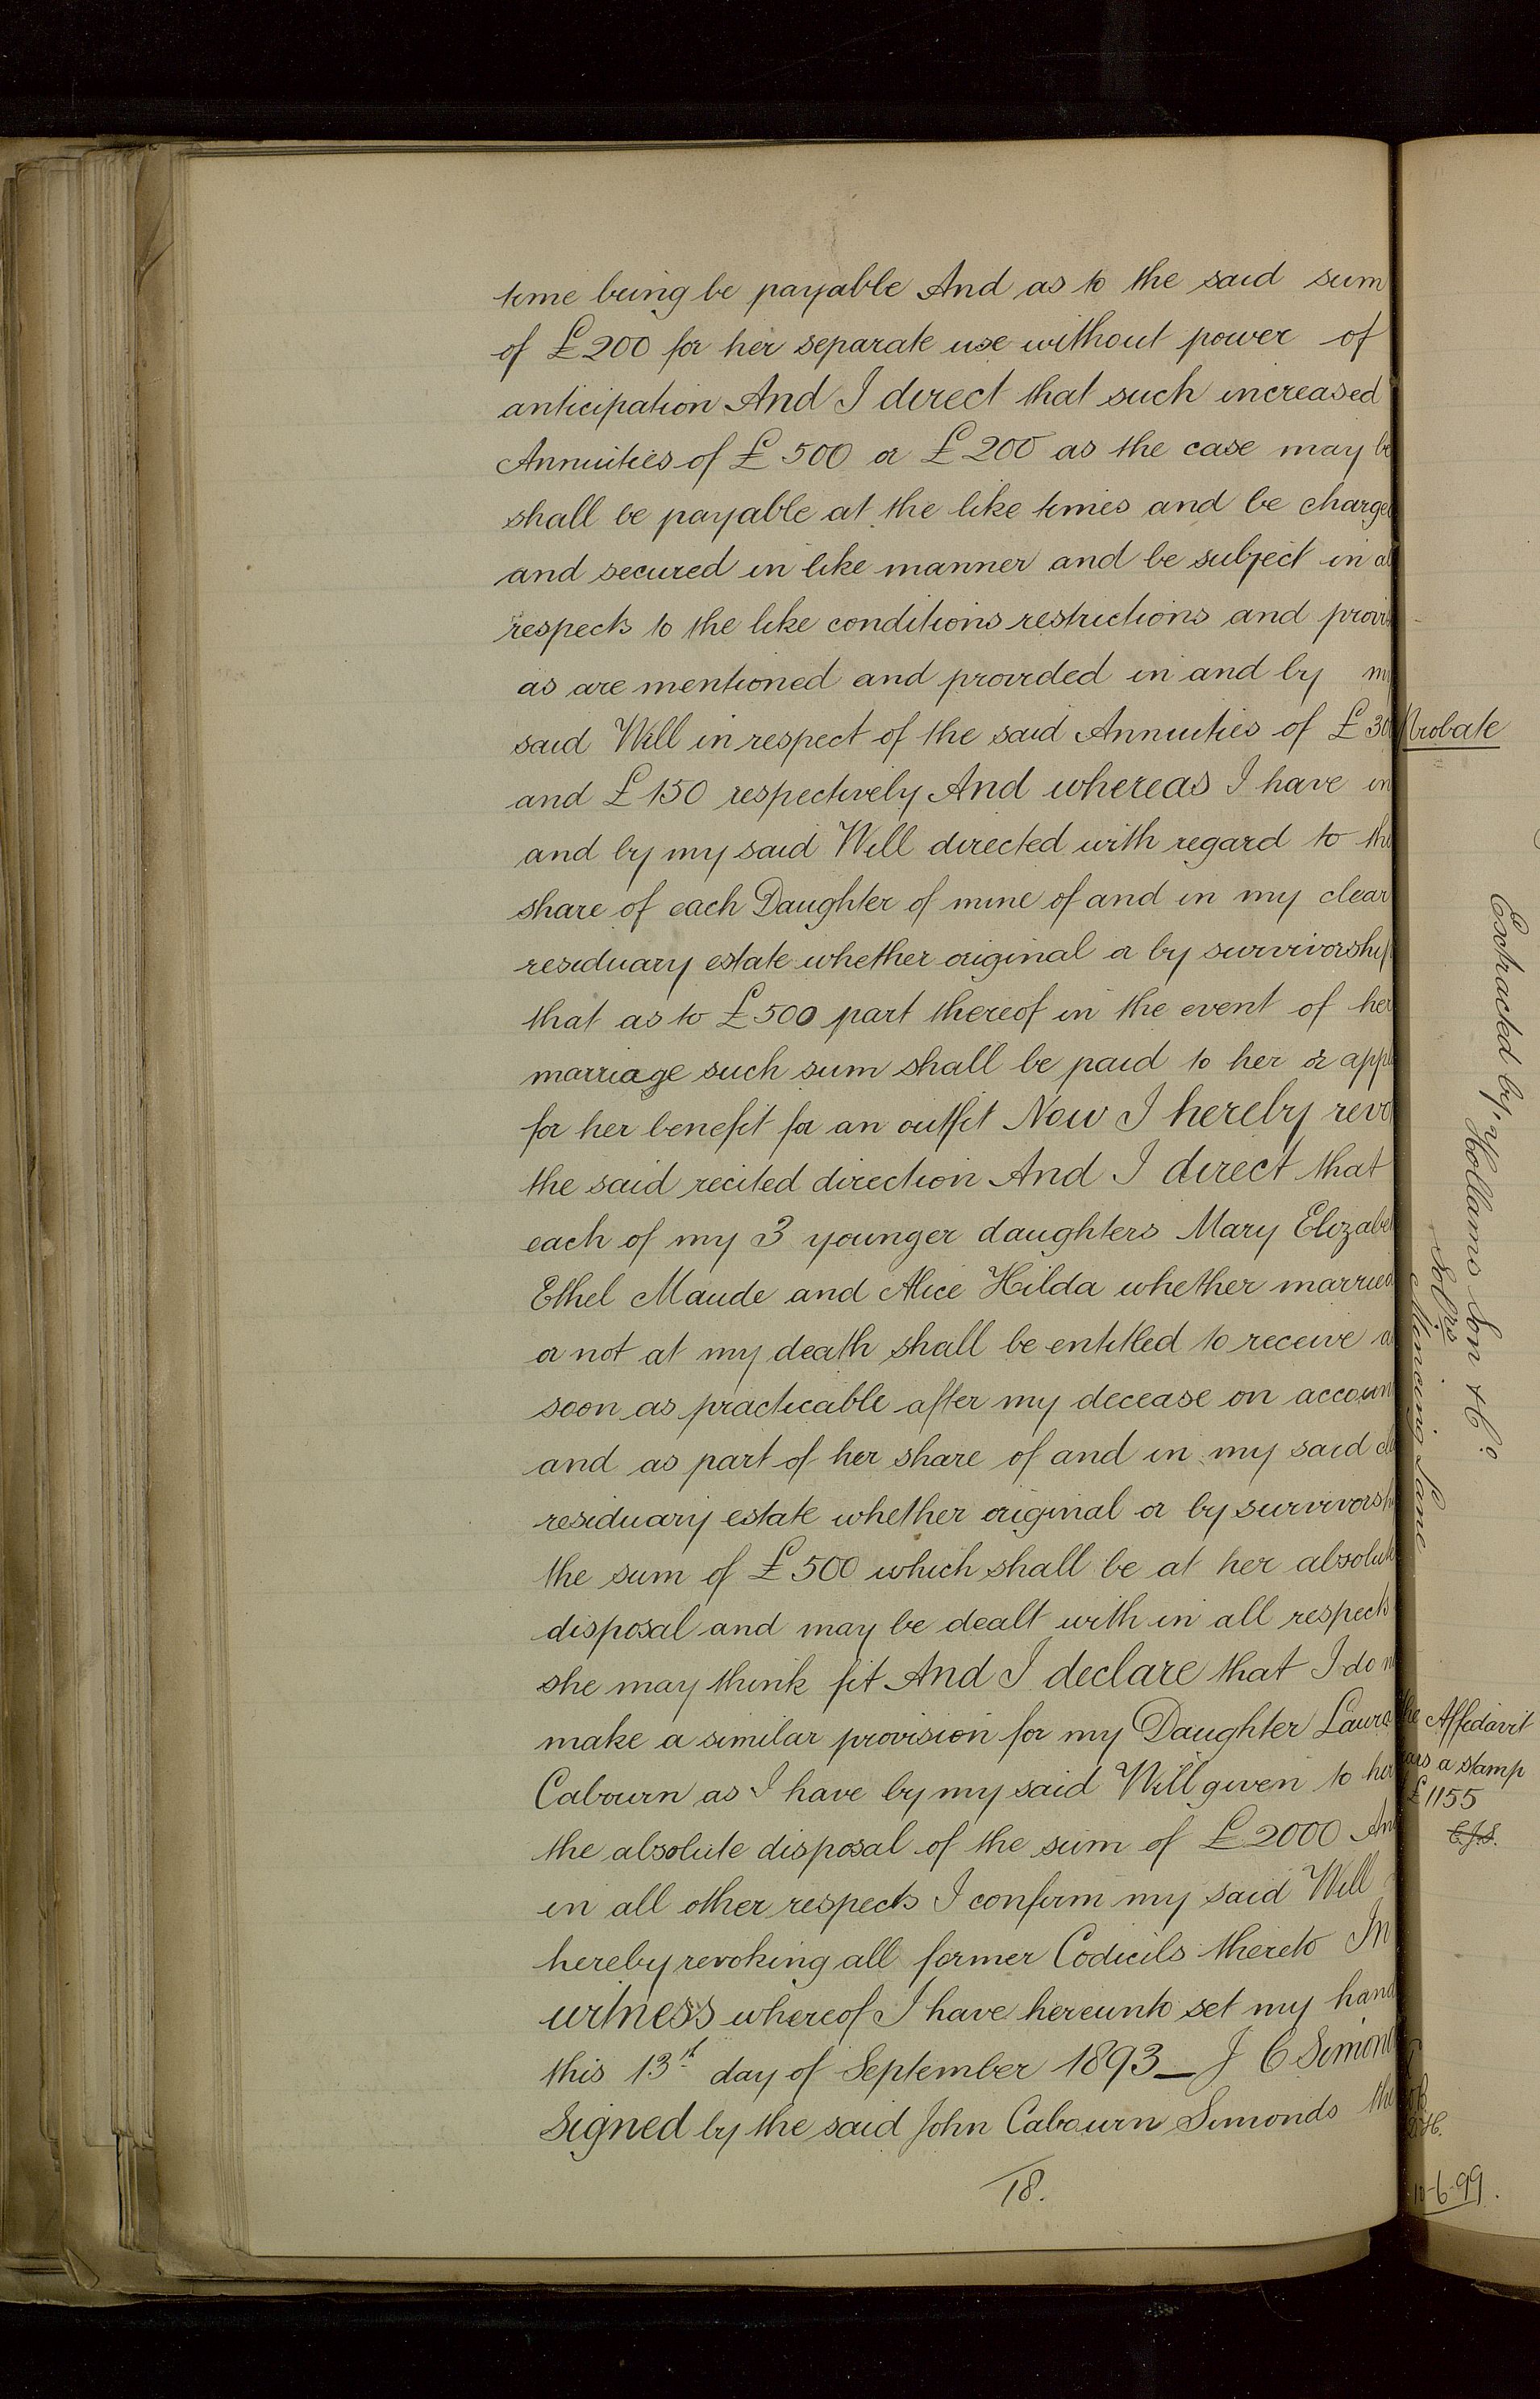 time being be payable And as to the said sum
of £200 for her separate use without power of
anticipation And I direct that such increased
Annuities of £500 or £200 as the case may be
shall be payable at the like times and be charge
and secured in like manner and be subject in al
respects to the like conditions restrictions and provis
as are mentioned and provided in and by my
said Will in respect of the said Annuities of £30
and £150 respectively And whereas I have in
and by my said Will directed with regard to the
share of each Daughter of mine of and in my clear
residuary estate whether original or by survivorship
that as to £500 part thereof in the event of her
marriage such sum shall be paid to her or appl
for her benefit for an outfit Now I hereby revo
the said recited direction And I direct that
each of my 3 younger daughters Mary Elizabe
Ethel Maude and Alice Hilda whether married
or not at my death shall be entitled to receive a
soon as practicable after my decease on accoun
and as part of her share of and in my said cl
residuary estate whether original or by survivorsh
the sum of £500 which shall be at her absolute
disposal and may be dealt with in all respects
she may think fit And I declare that I do n
make a similar provision for my Daughter Laura
Cabourn as I have by my said Will given to her
the absolute disposal of the sum of £2000 An
in all other respects I confirm my said Will
hereby revoking all former Codicils thereto In
witness whereof I have hereunto set my hand
this 13th day of September 1893_ J C Simond
Signed by the said John Cabourn Simonds the
18.
Probate
Extracted by Hollams Son & Co
Solrs
Mincing Lane
the Affidavit
ars a stamp
£1155
C.J.S.
10-6-99.